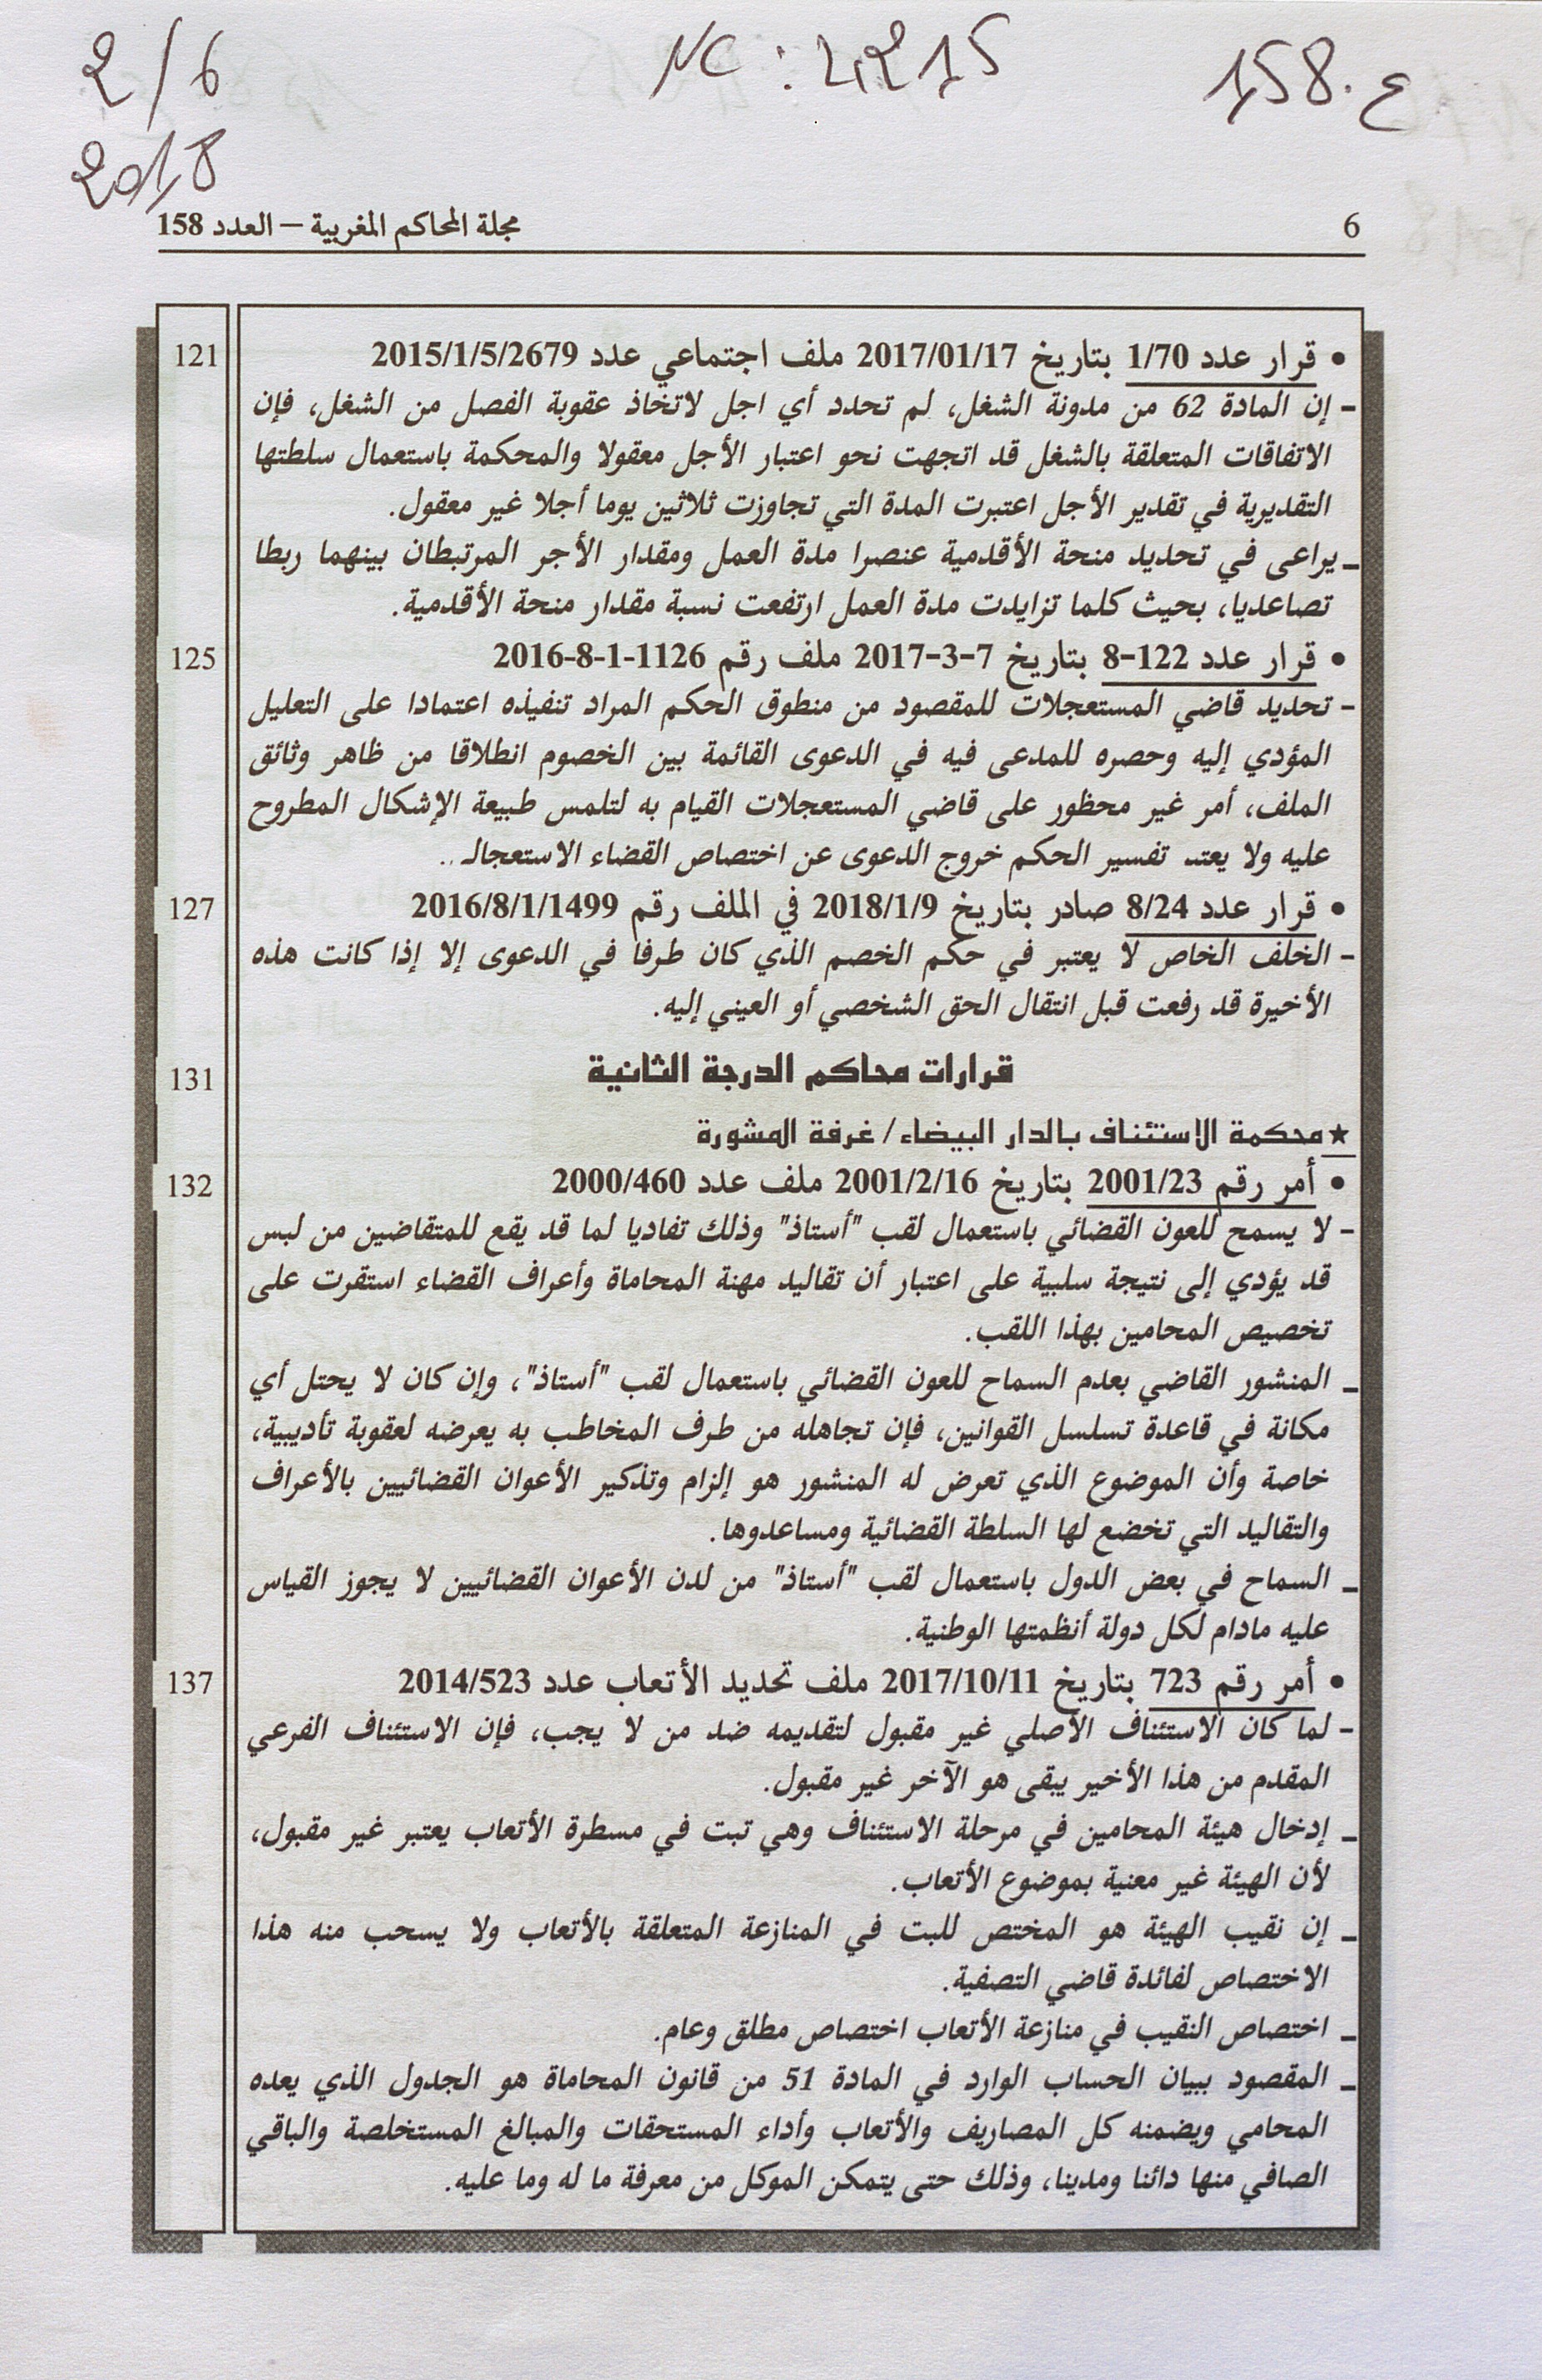 2/6
2018
NC : 4215
158.ع
مجلة المحاكم المغربية – العدد 158
6
• قرار عدد 1/70 بتاريخ 2017/01/17 ملف اجتماعي عدد 2015/1/5/2679
121
- إن المادة 62 من مدونة الشغل، لم تحدد أي اجل لاتخاذ عقوبة الفصل من الشغل، فإن
الاتفاقات المتعلقة بالشغل قد اتجهت نحو اعتبار الأجل معقولا والمحكمة باستعمال سلطتها
التقديرية في تقدير الأجل اعتبرت المدة التي تجاوزت ثلاثين يوما أجلا غير معقول.
_ يراعى في تحديد منحة الأقدمية عنصرا مدة العمل ومقدار الأجر المرتبطان بينهما ربطا
تصاعديا، بحيث كلما تزايدت مدة العمل ارتفعت نسبة مقدار منحة الأقدمية.
• قرار عدد 122-8 بتاريخ 7-3-2017 ملف رقم 1126-1-8-2016
125
- تحديد قاضي المستعجلات للمقصود من منطوق الحكم المراد تنفيذه اعتمادا على التعليل
المؤدي إليه وحصره للمدعى فيه في الدعوى القائمة بين الخصوم انطلاقا من ظاهر وثائق
الملف، أمر غير محظور على قاضي المستعجلات القيام به لتلمس طبيعة الإشكال المطروح
عليه ولا تفسير الحكم خروج الدعوى عن اختصاص القضاء
• قرار عدد 8/24 صادر بتاريخ 2018/1/9 في الملف رقم 2016/8/1/1499
127
- الخلف الخاص لا يعتبر في حكم الخصم الذي كان طرفا في الدعوى إلا إذا كانت هذه
الأخيرة قد رفعت قبل انتقال الحق الشخصي أو العيني إليه.
قرارات محاكم الدرجة الثانية
131
★ محكمة الاستئناف بالدار البيضاء/ غرفة المشورة
• أمر رقم 2001/23 بتاريخ 2001/2/16 ملف عدد 2000/460
132
- لا يسمح للعون القضائي باستعمال لقب "أستاذ" وذلك تفاديا لما قد يقع للمتقاضين من لبس
قد يؤدي إلى نتيجة سلبية على اعتبار أن تقاليد مهنة المحاماة وأعراف القضاء استقرت على
تخصيص المحامين بهذا اللقب.
_ المنشور القاضي بعدم السماح للعون القضائي باستعمال لقب "أستاذ"، وإن كان لا يحتل أي
مكانة في قاعدة تسلسل القوانين، فإن تجاهله من طرف المخاطب به يعرضه لعقوبة تأديبية،
خاصة وأن الموضوع الذي تعرض له المنشور هو إلزام وتذكير الأعوان القضائيين بالأعراف
والتقاليد التي تخضع لها السلطة القضائية ومساعدوها.
_ السماح في بعض الدول باستعمال لقب "أستاذ" من لدن الأعوان القضائيين لا يجوز القياس
عليه مادام لكل دولة أنظمتها الوطنية.
• أمر رقم 723 بتاريخ 2017/10/11 ملف تحديد الأتعاب عدد 2014/523
137
- لما كان الاستئناف الأصلي غير مقبول لتقديمه ضد من لا يجب، فإن الاستئناف الفرعي
المقدم من هذا الأخير يبقى هو الآخر غير مقبول.
_ إدخال هيئة المحامين في مرحلة الاستئناف وهي تبت في مسطرة الأتعاب يعتبر غير مقبول،
لأن الهيئة غير معنية بموضوع الأتعاب.
_ إن نقيب الهيئة هو المختص للبت في المنازعة المتعلقة بالأتعاب ولا يسحب منه هذا
الاختصاص لفائدة قاضي التصفية.
_ اختصاص النقيب في منازعة الأتعاب اختصاص مطلق وعام.
_ المقصود ببيان الحساب الوارد في المادة 51 من قانون المحاماة هو الجدول الذي يعده
المحامي ويضمنه كل المصاريف والأتعاب وأداء المستحقات والمبالغ المستخلصة والباقي
الصافي منها دائنا ومدينا، وذلك حتى يتمكن الموكل من معرفة ما له وما عليه.